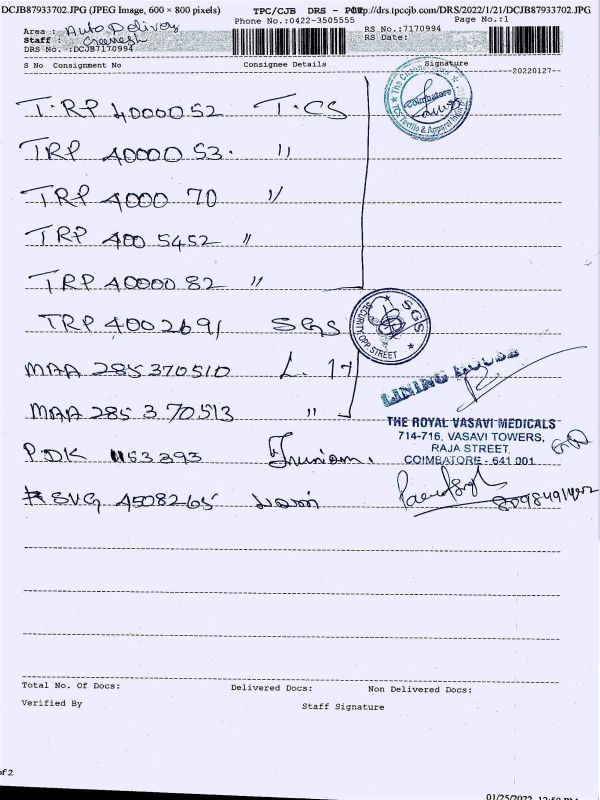 DCJB87933702.JPG (JPEG Image, 600 × 800 pixels) TPC/CJB DRS - http://drs.tpccjb.com/DRS/2022/1/21/DCJB87933702.JPG
Phone No.:0422-3505555 Page No.:1
Area : Auto Delivery RS No.:7170994
Staff : RS Date:
DRS No.:DCJB7170994
S No Consignment No Consignee Details Signature
20220127
T.RP 4000052 T.CS
TRP 40000 53. "
TRP 4000 70 "
TRP 400 5452 "
TRP 40000 82 "
TRP 4002691 SGS
SGS
SECURITY
OPP STREET
MAA 285370510 L. 17
LINING HOUSE
MAA 285 3 70513 "
THE ROYAL VASAVI MEDICALS
714-716, VASAVI TOWERS,
RAJA STREET,
COIMBATORE - 641 001
PDK 1153393
SVG 4508265
Coimbatore
Textile & Apparel
Total No. Of Docs: Delivered Docs: Non Delivered Docs:
Verified By Staff Signature
of 2